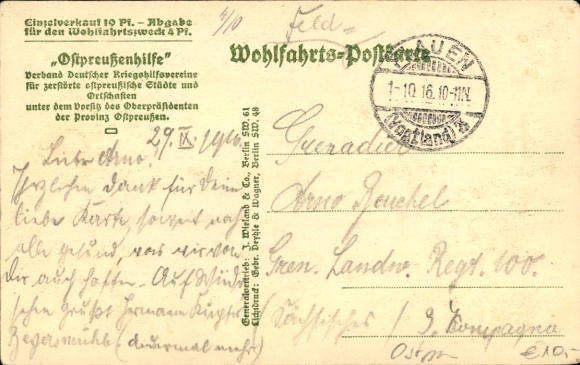 Einzelverkauf 10 Pf. – Abgabe
für den Wohlfahrtszweck 4 Pf.
„Ostpreußenhilfe"
Verband Deutscher Kriegshilfsvereine
für zerstörte ostpreußische Städte und
Ortschaften
unter dem Vorsitz des Oberpräsidenten
der Provinz Ostpreußen.
29. IX. 1916.
Lieber Arno.
Herzlichen Dank für Deine
liebe Karte, soweit noch
alle gesund, was wir von
Dir auch hoffen. Auf Wieder
sehen grüßt Hermann
Generalvertrieb: J. Wieland & Co., Berlin SW. 61
Lichtdruck: Gebr. Dietzle & Wagner, Berlin SW. 48
4/10
Feld=
Wohlfahrts-Postkarte
PLAUEN
1-10.16. 10-11N.
(Vogtland)
Grenadier
Arno
Gren. Landw. Regt. 100.
Sächsisches / 9. Kompagnie
€10,-